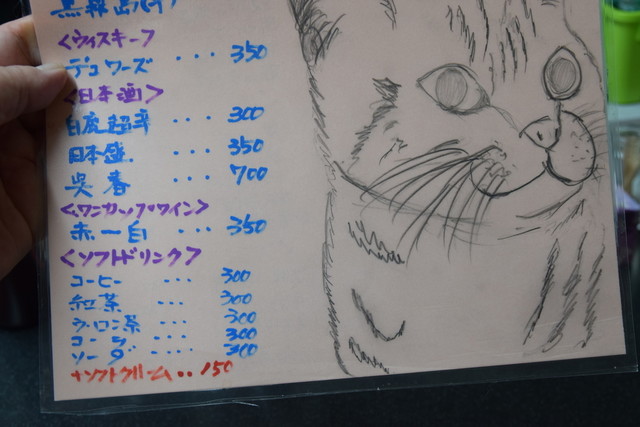 黒霧島(芋)
<ウィスキー>
デュワーズ ... 350
<日本酒>
白鹿超辛 ... 300
日本盛. ... 350
呉春 ... 700
<ワンカップワイン>
赤・白 ... 350
<ソフトドリンク>
コーヒー ... 300
紅茶 ... 300
ウーロン茶 ... 300
コーラ ... 300
ソーダ ... 300
+ソフトクリーム .. 150